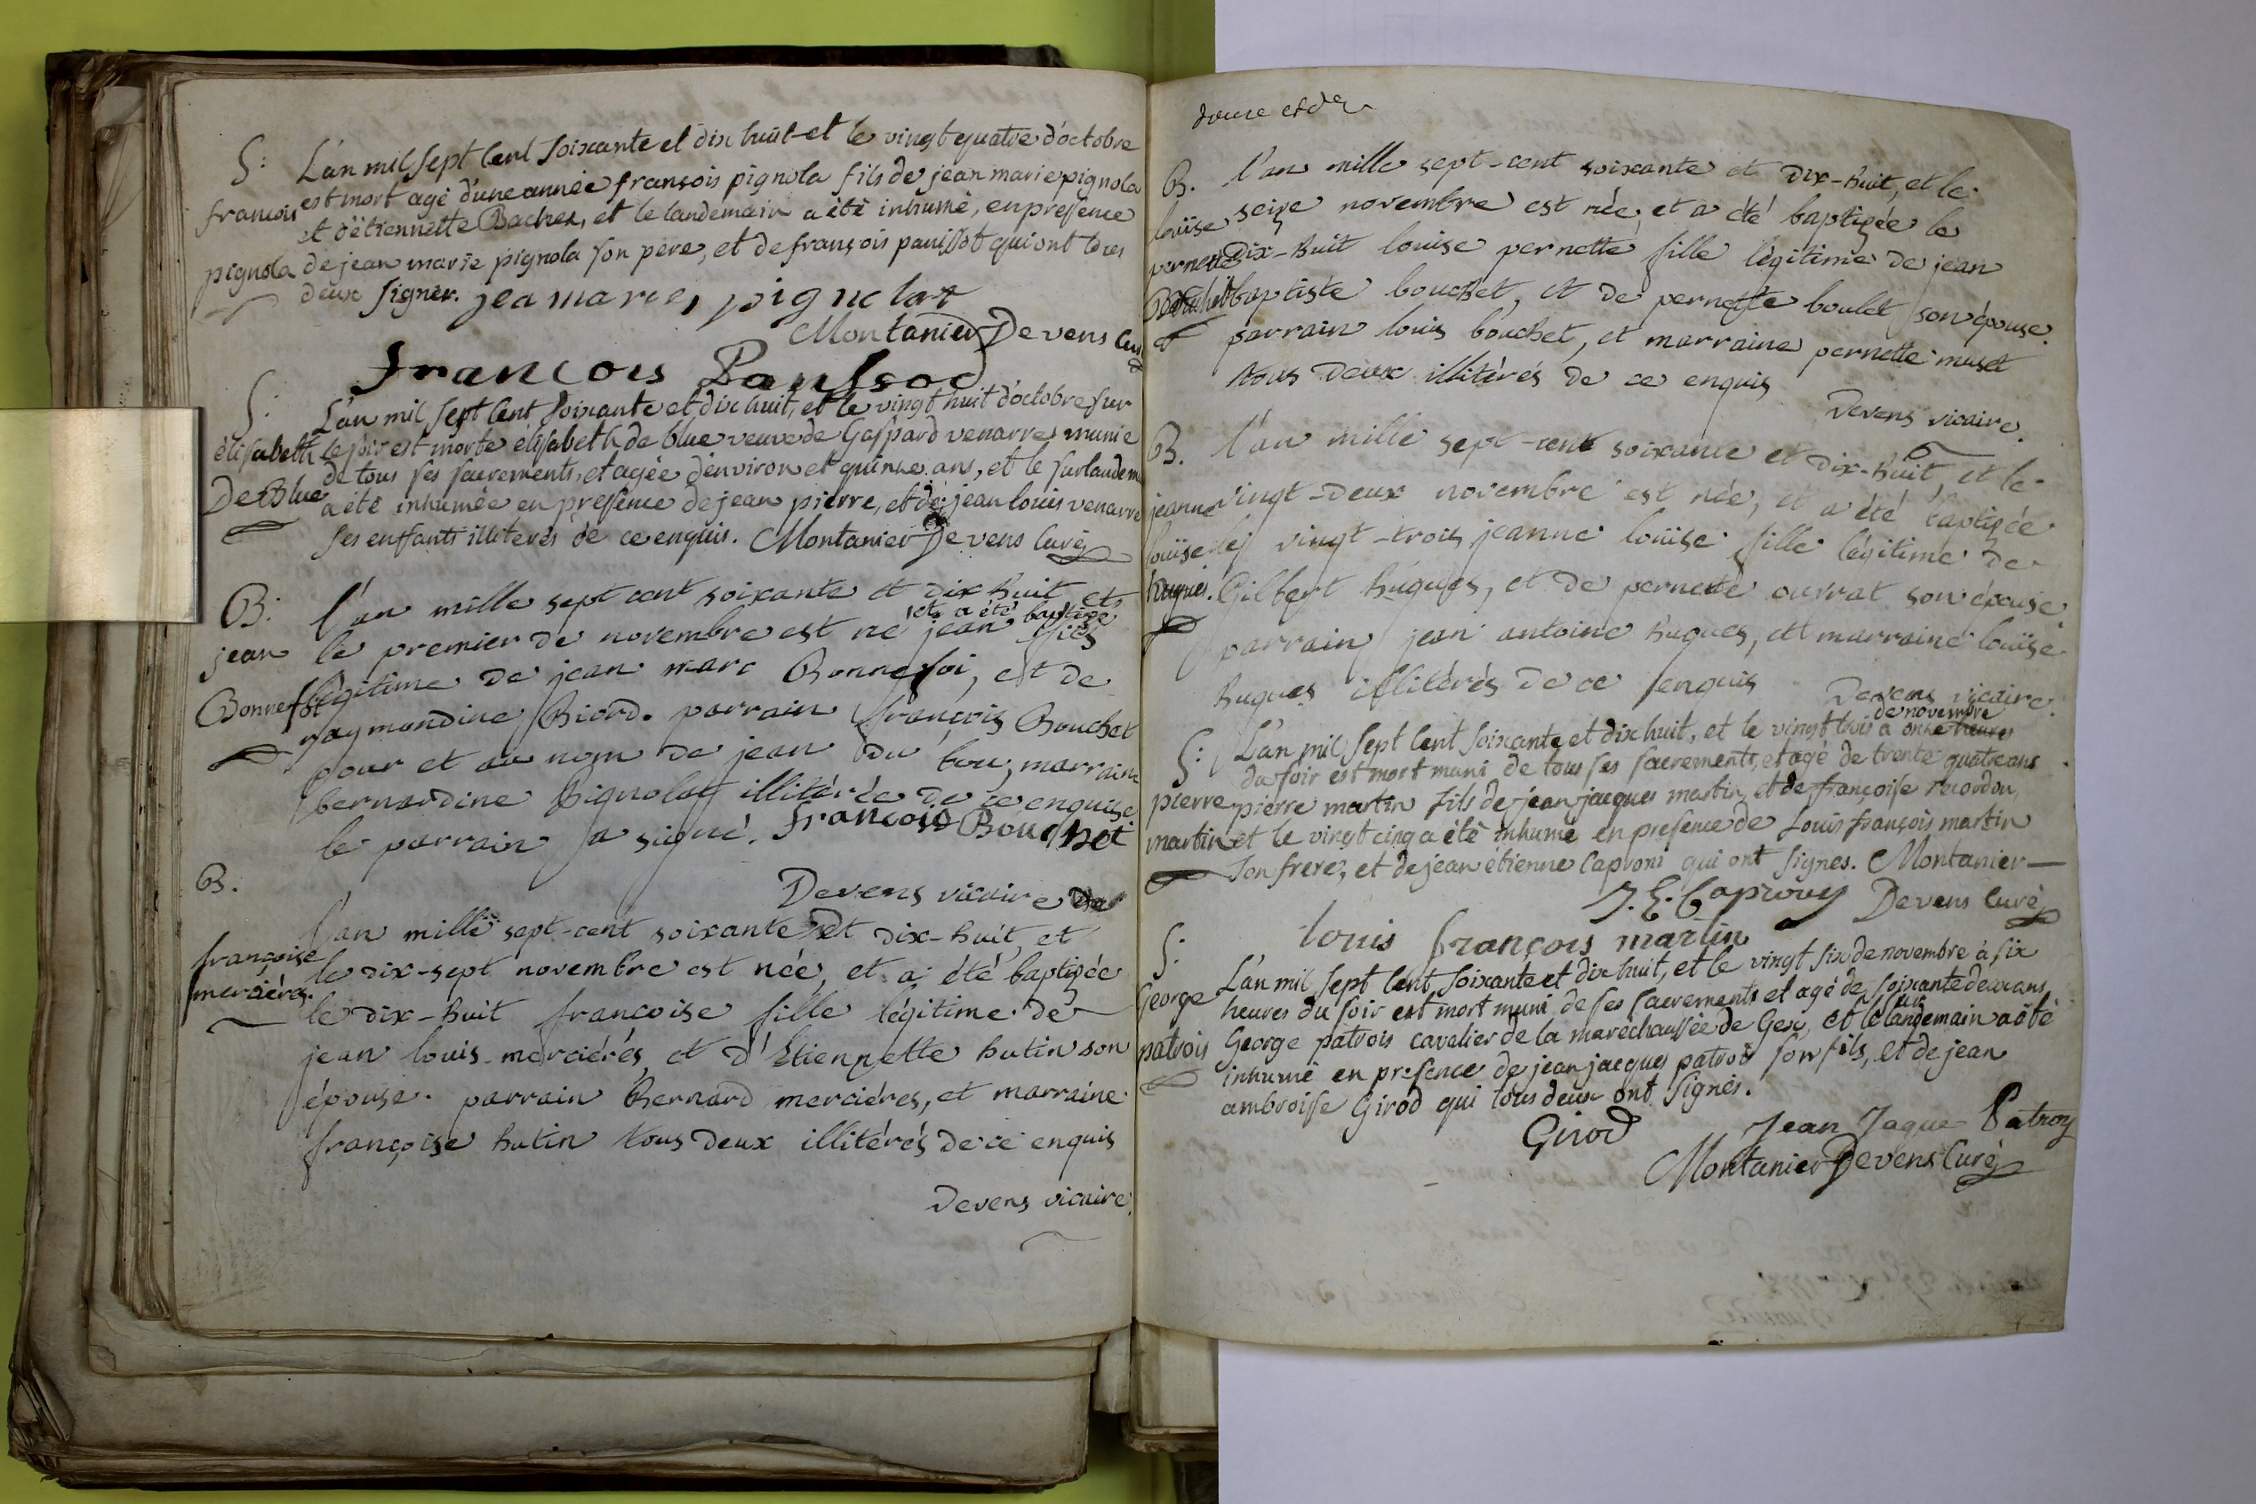 S: L'an mil sept cent soixante et dix huit et le vingt quatre d'octobre
françois est mort agé d'une année françois pignola fils de jean marie pignola
et d'ètiennette Bachex, et le landemain a été inhumé, en presence
pignola de jean marie pignola son pere, et de françois paussot qui ont tous
deux signer. jea marie, pignolat
Montanier Devens Curé
francois Paussod
S: L'an mil sept cent soixante et dix huit, et le vingt huit d'octobre sur
élisabeth le soir est morte élisabeth de blue veuve de Gaspard venarre munie
de tous ses sacrements, et agée d'environ et quinze ans, et le surlandem
De Blue a été inhumée en presence de jean pierre, et de jean louis venarre
ses enffants illiterés de ce enquis. Montanier Devens Curé
B: l'an mille sept cent soixante et dix huit et
et a été baptisé
jean le premier de novembre est né jean fils
Bonnefoi légitime de jean marc Bonnefoi, et de
raymondine Biord. parrain françois Bouchet
pour et au nom de jean du bou, marraine
bernardine Pignolat illitérée de ce enquise
le parrain a signé. francois Bouchet
B. Devens vicaire
l'an mille sept-cent soixante et dix-huit, et
françoise le dix-sept novembre est née, et a été baptizée
merciéres. le dix-huit francoise fille légitime de
jean louis merciérés, et d'Etiennette hutin son
épouse. parrain Bernard merciéres, et marraine
françoise hutin tous deux illitérés de ce enquis
Devens vicaire.
douze et de
B. l'an mille sept-cent soixante et dix-huit, et le
louise seize novembre est née, et a été baptizée le
pernette dix-huit louise pernette fille légitime de jean
Bouchet baptiste bouchet, et de pernette boulet son épouse.
parrain louis bouchet, et marraine pernette muset
tous deux illitérés de ce enquis
Devens vicaire.
B. l'an mille sept-cent soixante et dix-huit, et le
jeanne vingt-deux novembre est née, et a été baptizée
louise le vingt-trois jeanne louïse fille légitime de
hugues. Gilbert hugues, et de pernette ouvrat son épouse.
parrain jean antoine hugues, et marraine louïse
hugues illitérés de ce enquis Devens vicaire.
de novembre
S: L'an mil sept cent soixante et dix huit, et le vingt trois à onze heures
du soir est mort muni de tous ses sacrements, et agé de trente quatre ans
pierre pierre martin fils de jean jacques martin, et de françoise recordon,
martin et le vingt cinq a été inhumé en presence de Louis françois martin
son frere, et de jean étienne Caproni qui ont signes. Montanier
J. E. Caprony Devens Curé
louis françois martin
S: L'an mil sept cent soixante et dix huit, et le vingt six de novembre à six
George heures du soir est mort muni de ses sacrements et agé de soixante deux ans
sur
patrois George patrois cavalier de la marechaussée de Gex, et le landemain a été
inhumé en presence de jean jacques patrois son fils, et de jean
ambroisse Girod qui tous deux ont signés.
Girod Jean Jaque Patroy
Montanier Devens Curé